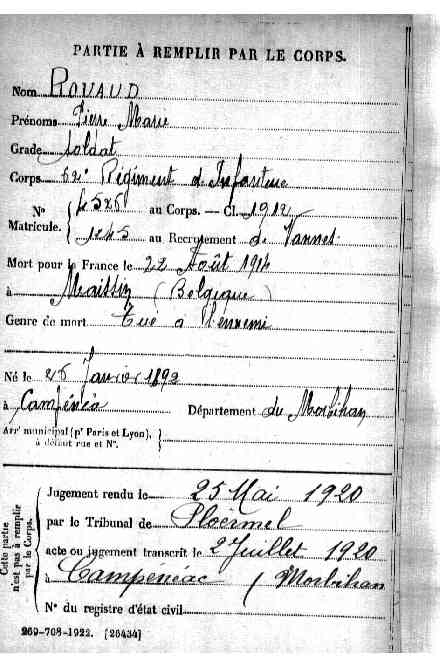 PARTIE À REMPLIR PAR LE CORPS.
Nom ROUAUD
Prénoms Pierre Marie
Grade soldat
Corps 62e Régiment d'Infanterie
N° Matricule. { 4526 au Corps. — Cl. 1912
1245 au Recrutement de Vannes
Mort pour la France le 22 Août 1914
à Maissin (Belgique)
Genre de mort Tué à l'ennemi
Né le 25 Janvier 1892
à Campénéac Département du Morbihan
Arrt municipal (pr Paris et Lyon),
à défaut rue et N°.
Cette partie n'est pas à remplir par le Corps.
Jugement rendu le 25 Mai 1920
par le Tribunal de Ploërmel
acte ou jugement transcrit le 2 Juillet 1920
à Campénéac (Morbihan
N° du registre d'état civil
269-708-1922. [26434]